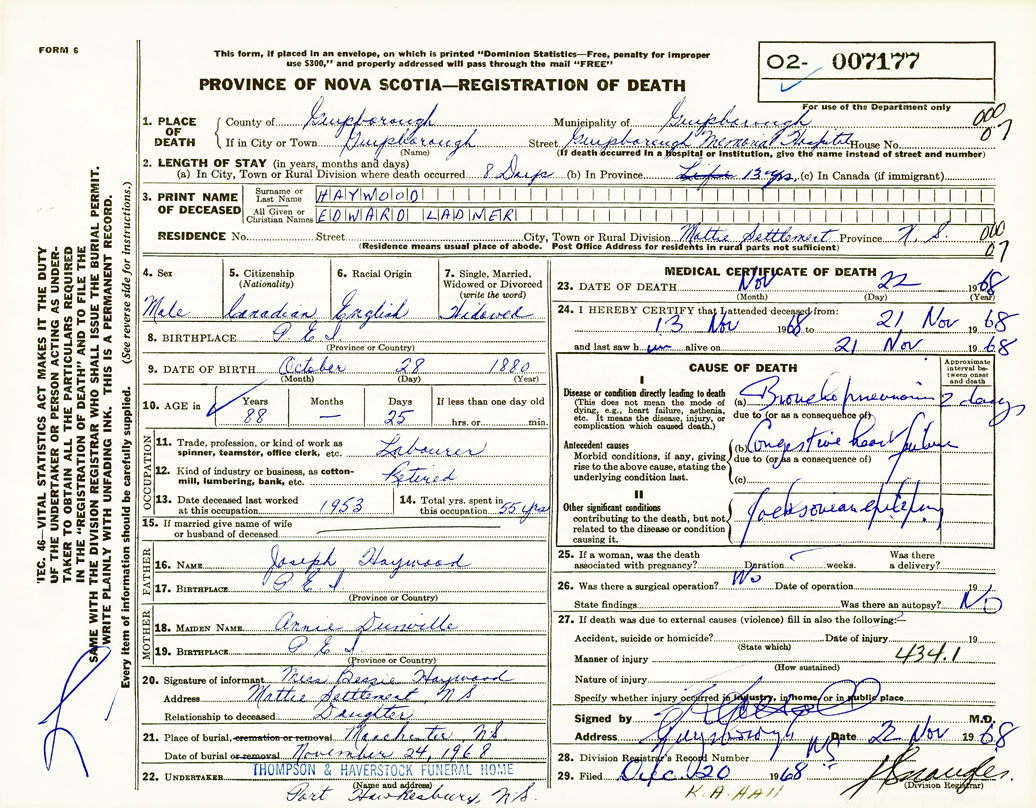 FORM 6
This form, if placed in an envelope, on which is printed "Dominion Statistics—Free, penalty for improper
use $300," and properly addressed will pass through the mail "FREE"
PROVINCE OF NOVA SCOTIA—REGISTRATION OF DEATH
02- 007177
For use of the Department only
000
07
1. PLACE OF DEATH
County of Guysborough Municipality of Guysborough
If in City or Town Guysborough Street Guysborough Memorial Hospital House No.
(Name) (If death occurred in a hospital or institution, give the name instead of street and number)
2. LENGTH OF STAY (in years, months and days)
(a) In City, Town or Rural Division where death occurred 8 Days (b) In Province Life 13 yrs. (c) In Canada (if immigrant)
3. PRINT NAME OF DECEASED
Surname or Last Name HAYWOOD
All Given or Christian Names EDWARD LADNER
RESIDENCE No. Street City, Town or Rural Division Mattie Settlement Province N. S.
(Residence means usual place of abode. Post Office Address for residents in rural parts not sufficient)
000
07
'TEC. 46—VITAL STATISTICS ACT MAKES IT THE DUTY
OF THE UNDERTAKER OR PERSON ACTING AS UNDER-
TAKER TO OBTAIN ALL THE PARTICULARS REQUIRED
IN THE "REGISTRATION OF DEATH" AND TO FILE THE
SAME WITH THE DIVISION REGISTRAR WHO SHALL ISSUE THE BURIAL PERMIT.
WRITE PLAINLY WITH UNFADING INK. THIS IS A PERMANENT RECORD.
Every item of information should be carefully supplied. (See reverse side for instructions.)
4. Sex
Male
5. Citizenship
(Nationality)
Canadian
6. Racial Origin
English
7. Single, Married,
Widowed or Divorced
(write the word)
Widowed
8. BIRTHPLACE P. E. I.
(Province or Country)
9. DATE OF BIRTH October 28 1880
(Month) (Day) (Year)
10. AGE in
Years Months Days If less than one day old
88 — 25 hrs. or min.
OCCUPATION
11. Trade, profession, or kind of work as
spinner, teamster, office clerk, etc. Labourer
12. Kind of industry or business, as cotton-
mill, lumbering, bank, etc. Retired
13. Date deceased last worked
at this occupation 1953
14. Total yrs. spent in
this occupation 55 yrs
15. If married give name of wife
or husband of deceased
FATHER
16. NAME Joseph Haywood
17. BIRTHPLACE P E I
(Province or Country)
MOTHER
18. MAIDEN NAME Annie Dunville
19. BIRTHPLACE P. E. I.
(Province or Country)
20. Signature of informant Miss Bessie Haywood
Address Mattie Settlement, N S
Relationship to deceased Daughter
21. Place of burial, cremation or removal Manchester N.S.
Date of burial or removal November 24, 1968
22. UNDERTAKER THOMPSON & HAVERSTOCK FUNERAL HOME
(Name and address)
Port Hawkesbury, N.S.
MEDICAL CERTIFICATE OF DEATH
23. DATE OF DEATH Nov 22 1968
(Month) (Day) (Year)
24. I HEREBY CERTIFY that I attended deceased from:
13 Nov 1968 to 21 Nov 1968
and last saw him alive on 21 Nov 1968
CAUSE OF DEATH
Approximate interval between onset and death
I
Disease or condition directly leading to death
(This does not mean the mode of
dying, e.g., heart failure, asthenia,
etc. It means the disease, injury, or
complication which caused death.)
(a) Broncho pneumonia 2 days
due to (or as a consequence of)
Antecedent causes
Morbid conditions, if any, giving
rise to the above cause, stating the
underlying condition last.
(b) Congestive heart failure
due to (or as a consequence of)
(c)
II
Other significant conditions
contributing to the death, but not
related to the disease or condition
causing it.
Jacksonian epilepsy
25. If a woman, was the death
associated with pregnancy? Duration weeks. Was there
a delivery?
26. Was there a surgical operation? No Date of operation 19
State findings Was there an autopsy? No
27. If death was due to external causes (violence) fill in also the following:
Accident, suicide or homicide? Date of injury 19
(State which)
Manner of injury 434.1
(How sustained)
Nature of injury
Specify whether injury occurred in industry, in home, or in public place
Signed by M.D.
Address Guysborough NS Date 22 Nov 1968
28. Division Registrar's Record Number
29. Filed Dec. 20 1968
(Division Registrar)
K. A. HALL